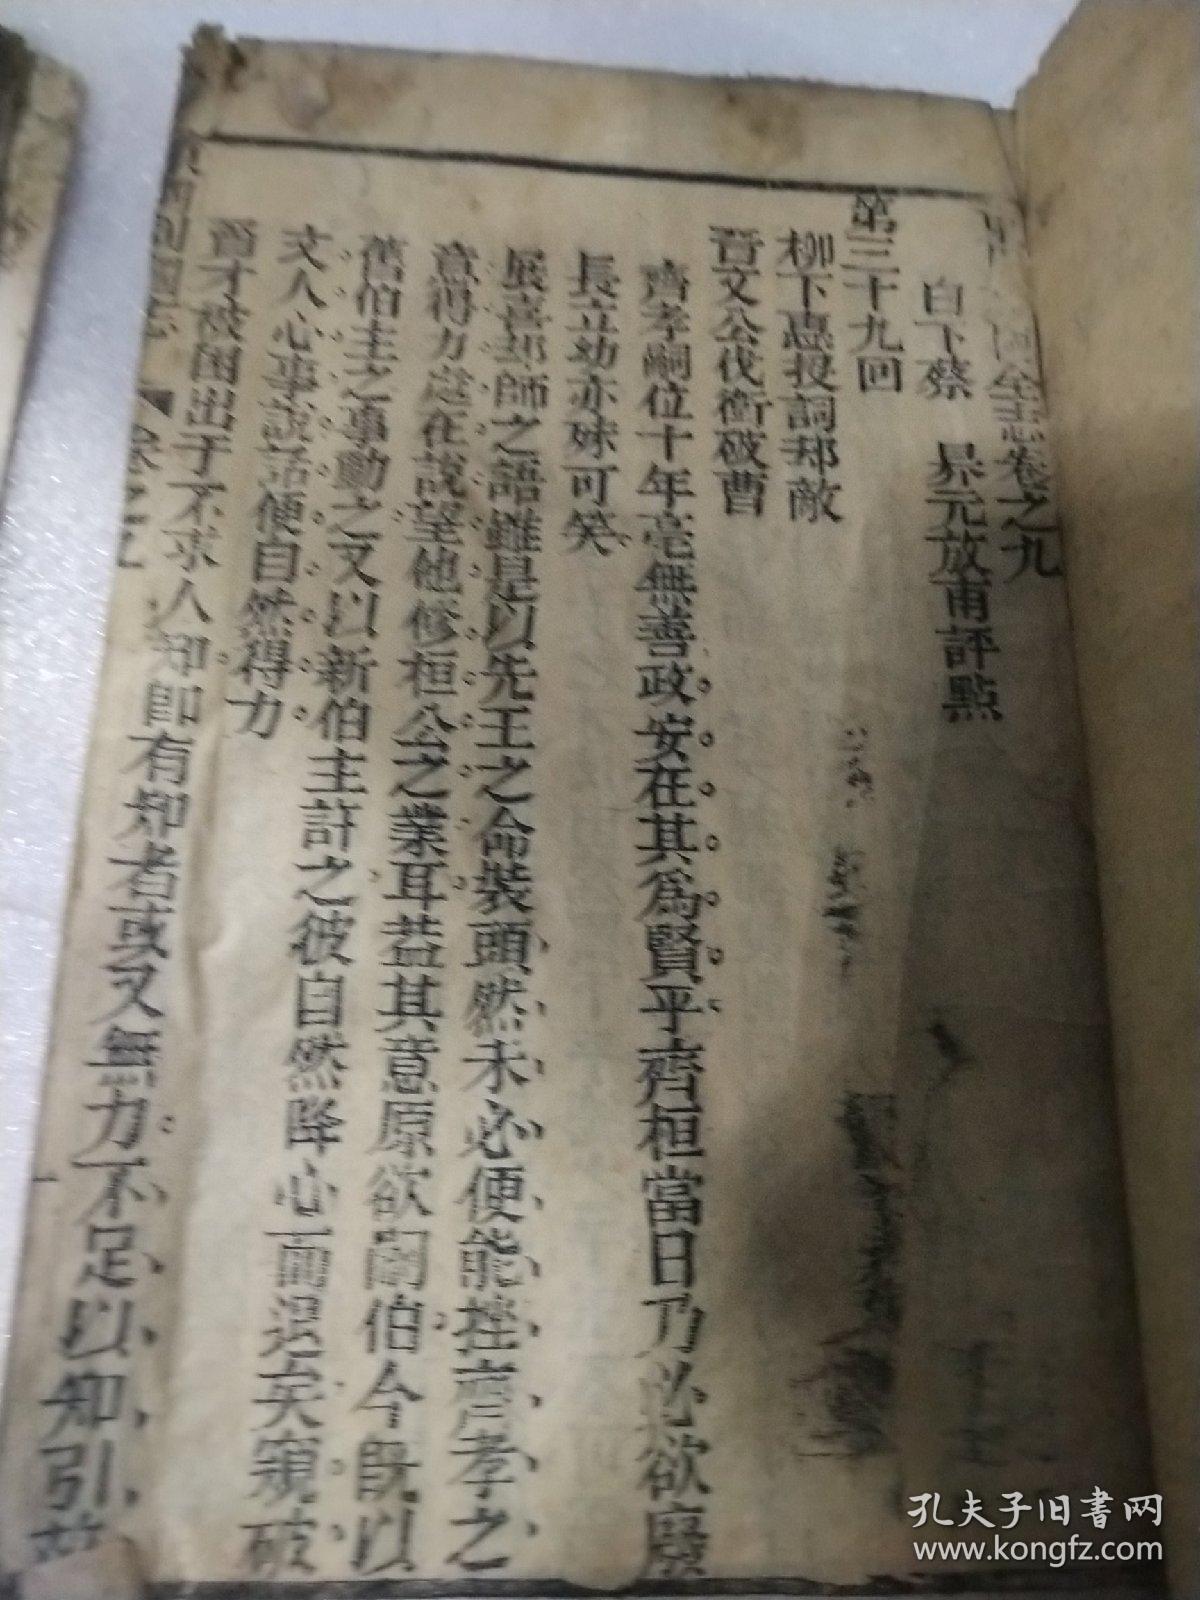 全志卷之九
白下蔡　昇元放甫評點
第三十九回
柳下惠授詞却敵
晉文公伐衛破曹
齊孝嗣位十年毫無善政安在其為賢乎齊桓當日乃必欲廢
長立幼亦殊可笑
展喜却師之語雖是以先王之命裝頭然未必便能挫齊孝之
意得力處在說望他修桓公之業耳葢其意原欲嗣伯今既以
舊伯主之事動之又以新伯主許之彼自然降心而退矣窺破
文人心事說話便自然得力
賢才被困出于不求人知即有知者或又無力不足以知引
列國志　卷之九
孔夫子旧书网
www.kongfz.com